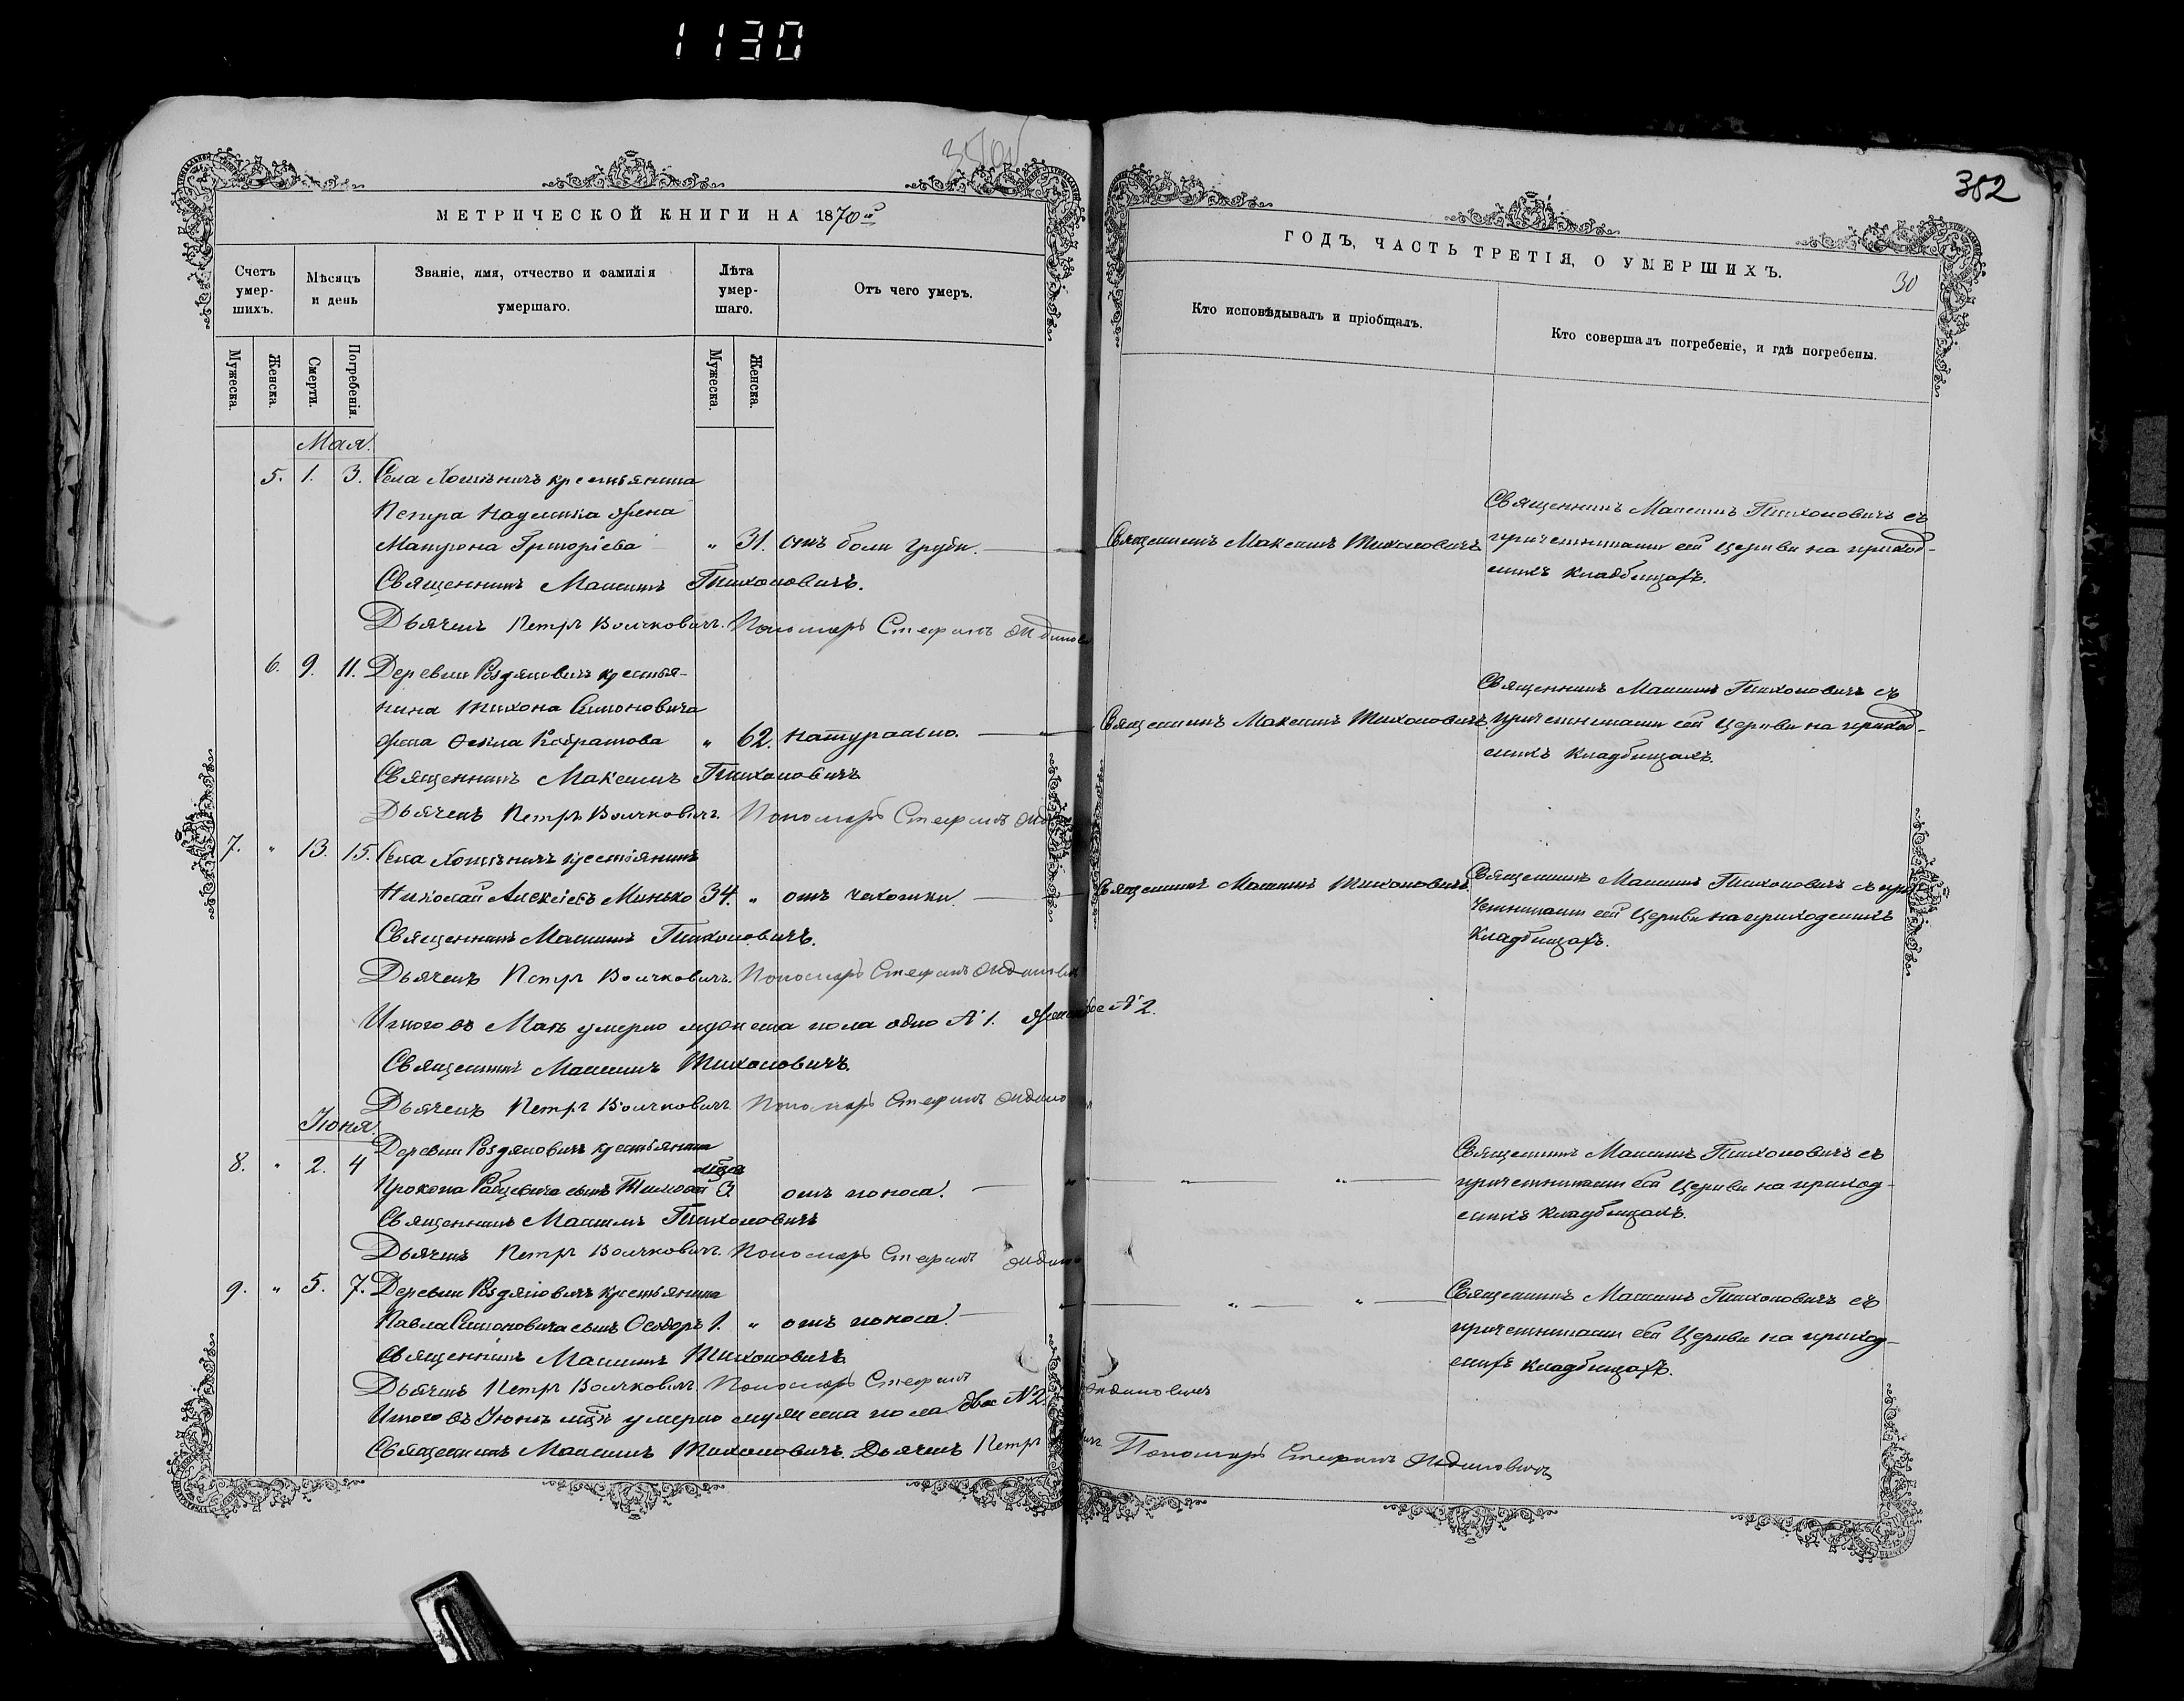 1130
382
30
МЕТРИЧЕСКОЙ КНИГИ НА 1870й
Счетъ умер-шихъ.
Мѣсяцъ и день
Званіе, имя, отчество и фамилія умершаго.
Лѣта умер-шаго.
Отъ чего умеръ.
Мужеска.
Женска.
Смерти.
Погребенія.
Мужеска.
Женска.
Мая.
5. 1. 3. Села Хотѣничъ крестьянина
Петра жена
Матрона Григорієва „ 31. отъ боли груди.
Священникъ Максимъ Тихоновичъ.
Дьячекъ Петръ Волчковичъ. Пономарь Стефанъ
6. 9. 11. Деревни крестья-
нина Тихона Симоновича
жена Ѳекла „ 62. натурально.
Священникъ Максимъ Тихоновичъ
Дьячекъ Петръ Волчковичъ. Пономарь Стефанъ
7. „ 13. 15. Села Хотѣничъ крестьянинъ
Николай Алексіевъ Минько 34. „ отъ чахотки.
Священникъ Максимъ Тихоновичъ.
Дьячекъ Петръ Волчковичъ. Пономарь Стефанъ
Итого въ Маѣ умерло мужеска пола одно №1. женска двѣ №2.
Священникъ Максимъ Тихоновичъ.
Дьячекъ Петръ Волчковичъ Пономарь Стефанъ
Іюня.
8. „ 2. 4 Деревни крестьянина
Прокопа Рабцевича сынъ 3 отъ поноса.
Священникъ Максимъ Тихоновичъ
Дьячекъ Петръ Волчковичъ. Пономарь Стефанъ
9. „ 5. 7. Деревни крестьянина
Павла Симоновича сынъ Ѳеодоръ 1. „ отъ поноса.
Священникъ Максимъ Тихоновичъ
Дьячекъ Петръ Волчковичъ. Пономарь Стефанъ
Итого въ Іюнѣ м-цѣ умерло мужеска пола два №2.
Священникъ Максимъ Тихоновичъ. Дьячекъ Петръ Пономарь Стефанъ
ГОДЪ, ЧАСТЬ ТРЕТІЯ, О УМЕРШИХЪ.
Кто исповѣдывалъ и пріобщалъ.
Кто совершалъ погребеніе, и гдѣ погребены.
Священникъ Максимъ Тихоновичъ
Священникъ Максимъ Тихоновичъ съ
причетниками сей Церкви на приход-
скихъ кладбищахъ.
Священникъ Максимъ Тихоновичъ
Священникъ Максимъ Тихоновичъ съ
причетниками сей Церкви на приход-
скихъ кладбищахъ.
Священникъ Максимъ Тихоновичъ
Священникъ Максимъ Тихоновичъ съ при-
четниками сей Церкви на приходскихъ
кладбищахъ.
„ „ „
Священникъ Максимъ Тихоновичъ съ
причетниками сей Церкви на приход-
скихъ кладбищахъ.
„ „
Священникъ Максимъ Тихоновичъ съ
причетниками сей Церкви на приход-
скихъ кладбищахъ.